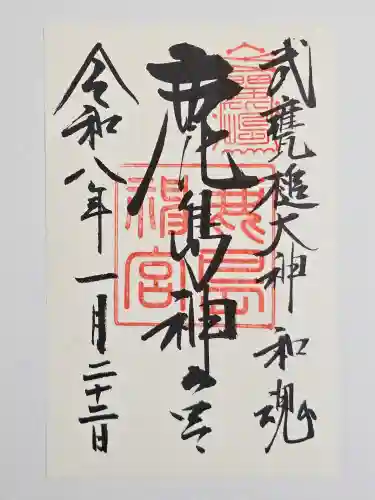 武甕槌大神 和魂
鹿島神宮
鹿島神宮
令和八年 一月二十二日